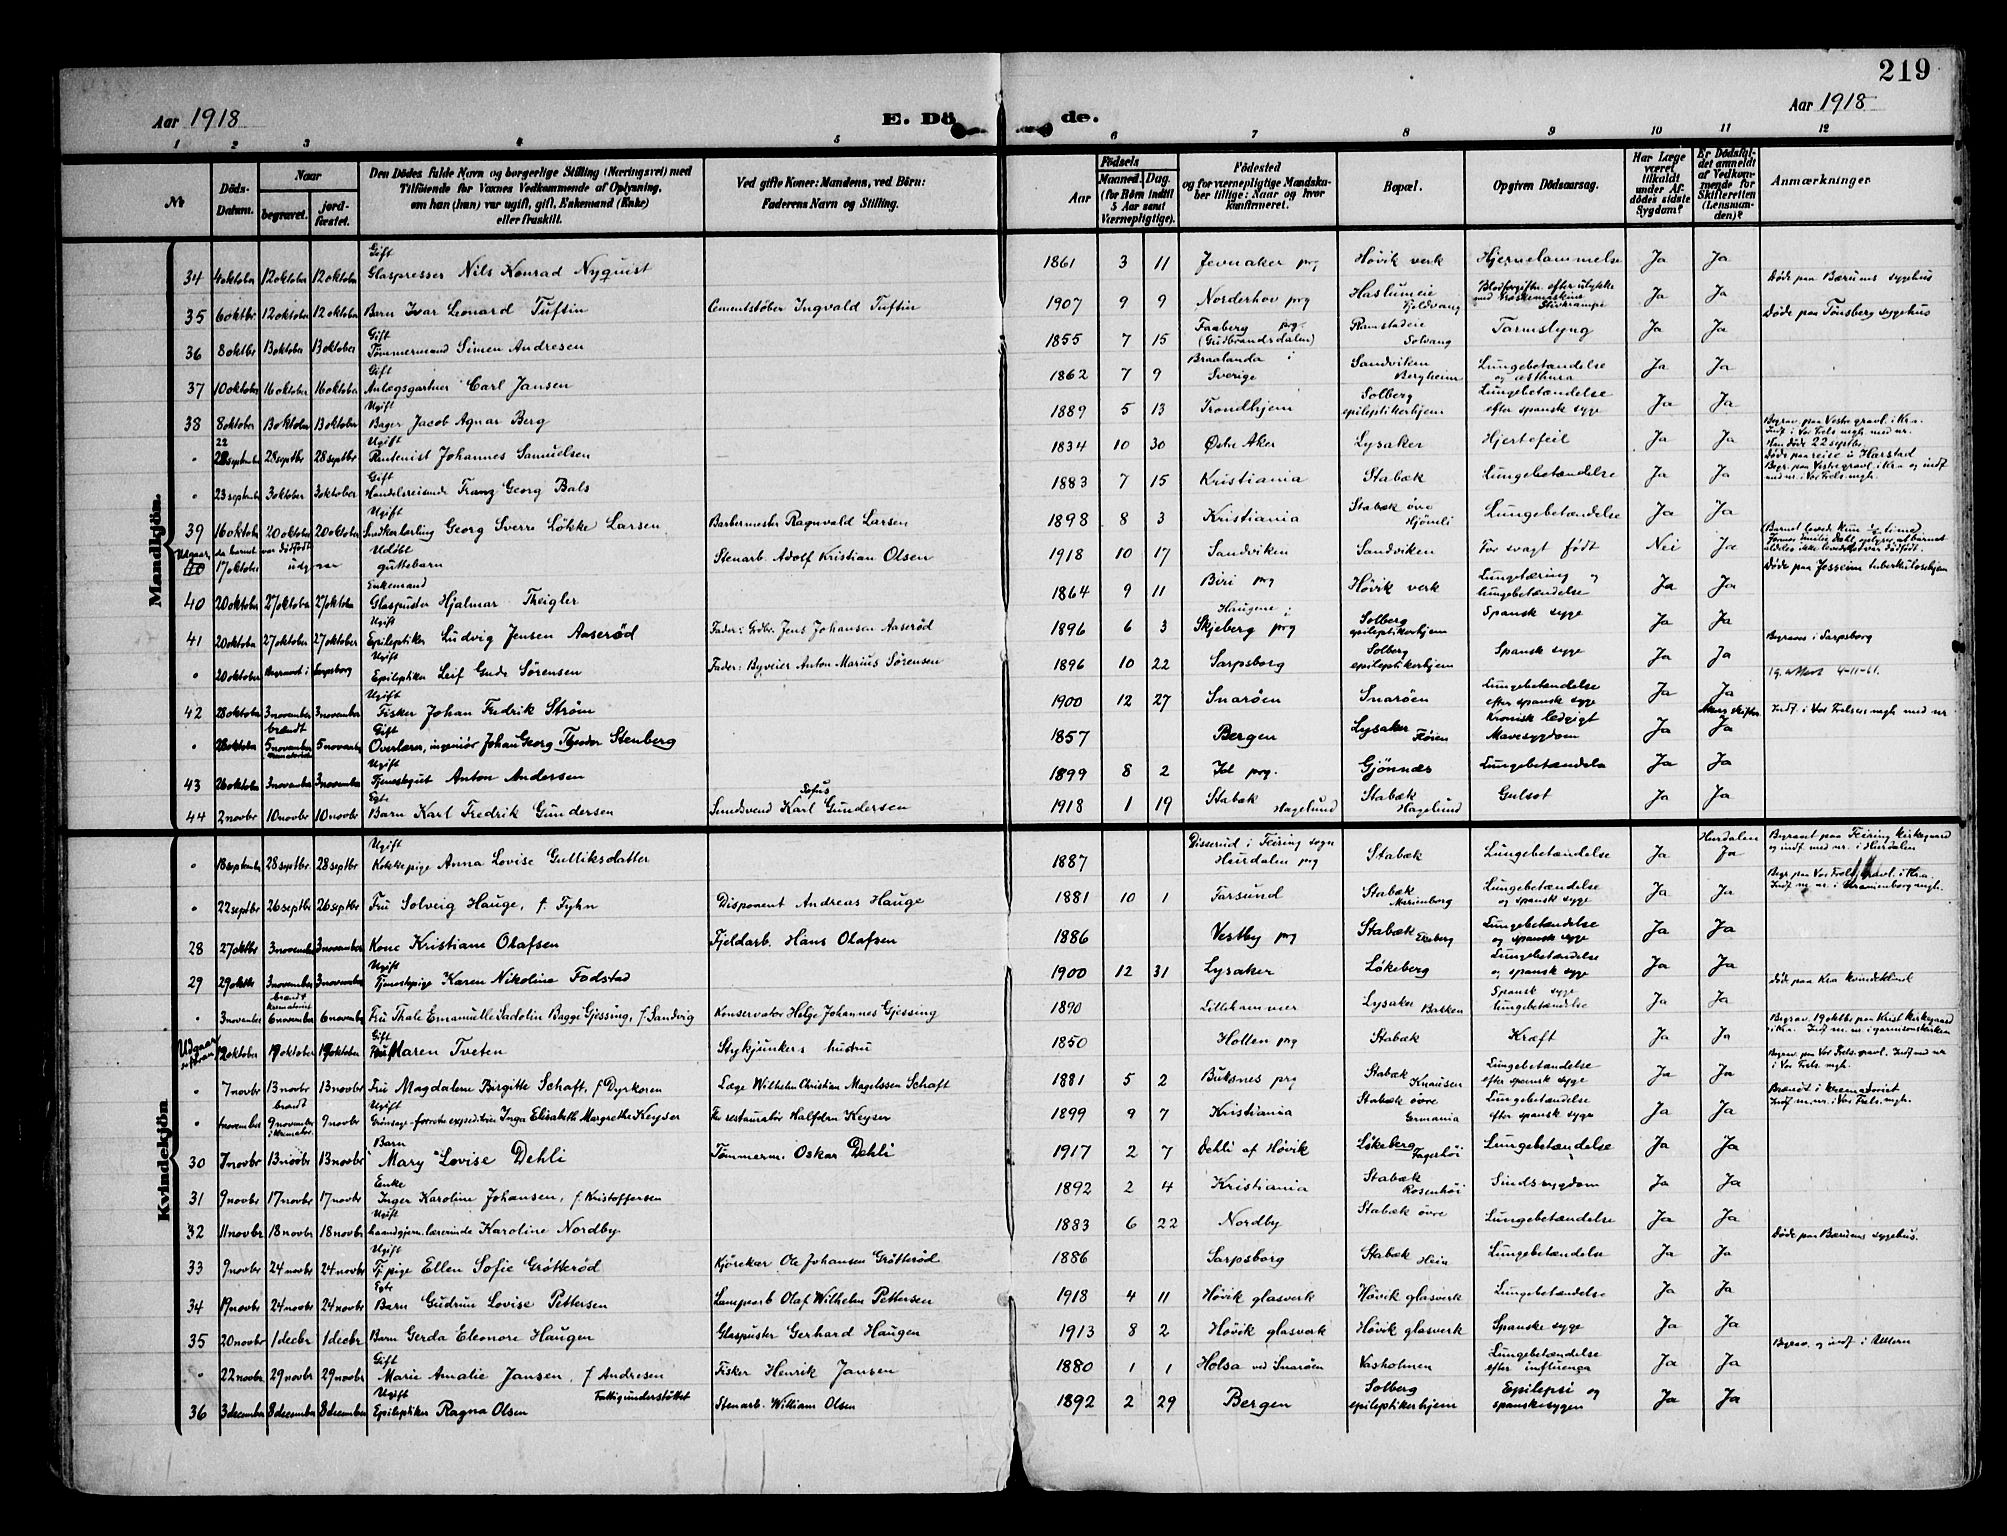 219
Aar 1918
E. Dö de.
Aar 1918
1 2 3 4 5 6 7 8 9 10 11 12
№
Döds-Datum.
Naar
begravet.
jord-fæstet.
Den Dödes fulde Navn og borgerlige Stilling (Næringsvei) med
Tilföiende for Voxnes Vedkommende af Oplysning,
om han (hun) var ugift, gift, Enkemand (Enke)
eller fraskilt.
Ved gifte Koner: Mandens, ved Börn:
Faderens Navn og Stilling.
Födsels
Aar
Maaned. Dag.
(for Börn indtil
5 Aar samt
Værnepligtige).
Födested
og for værnepligtige Mandska-
ber tillige: Naar og hvor
konfirmeret.
Bopæl.
Opgiven Dödsaarsag.
Har Læge
været
tilkaldt
under Af-
dödes sidste
Sygdom?
Er Dödsfal-
det anmeldt
af Vedkom-
mende for
Skifteretten
(Lensman-
den)?
Anmærkninger
Mandkjön.
34 4 oktober 12 oktober 12 oktober Gift Glaspresser Nils Konrad Nyquist 1861 3 11 Jevnaker prg Høvik verk Hjernelammelse Ja Ja
35 6 oktbr 12 oktober 12 oktober Barn Ivar Leonard Tuftin Cementstøber Ingvald Tuftin 1907 9 9 Norderhov prg Haslumeie Fjeldvang Blodforgiftn. efter ulykke med Stivkrampe Ja Ja Døde paa Bærums sygehus
36 8 oktbr 13 oktober 13 oktober Gift Tømmermand Simen Andresen 1855 7 15 Faaberg prg. (Gudbrandsdalen) Ramstadeie Solvang Tarmslyng Ja Ja Døde paa Tønsberg sygehus
37 10 oktober 16 oktober 16 oktober Gift Anlægsgartner Carl Jansen 1862 7 9 Braalanda i Sverige Sandviken Bergheim Lungebetændelse og asthma Ja Ja
38 8 oktober 13 oktober 13 oktober Ugift Bager Jacob Agnar Berg 1889 5 13 Trondhjem Solberg epileptikerhjem Lungebetændelse efter spansk syge Ja Ja
" 22 september 28 septbr 28 septbr Ugift Rentenist Johannes Samuelsen 1834 10 30 Østre Aker Lysaker Hjertefeil Ja Ja Begrav. paa Vestre gravl. i Kra. Indf. i Vor Frels. mgh. med nr. Han døde 22 septbr.
" 23 septembr 3 oktober 3 oktober Gift Handelsreisende Franz Georg Bals 1883 7 15 Kristiania Stabæk Lungebetændelse Ja Ja Døde paa reise i Harstad Begr. paa Vestre gravl. i Kra og indf med nr. i Vor Frels. mgh.
39 16 oktober 20 oktober 20 oktober Ugift Snedkerlærling Georg Sverre Løkke Larsen Barbermester Ragnvald Larsen 1898 8 3 Kristiania Stabæk øvre Hjemli Lungebetændelse Ja Ja
Udgaar, da barnet var dødfødt 17 oktober udgaar Udøbt guttebarn Stenarb. Adolf Kristian Olsen 1918 10 17 Sandviken Sandviken For svagt født Nei Ja (Barnet levede kun ½ time). Jormor Emilie Dahl oplyser at barnet aldeles ikke levede, det var dødfødt.
40 20 oktober 27 oktober 27 oktober Enkemand Glaspuster Hjalmar Theigler 1864 9 11 Biri prg Høvik verk Lungtæring og lungebetændelse Ja Ja Døde paa Josseim tuberkulosehjem
41 20 oktober 27 oktober 27 oktober Ugift Epileptiker Ludvig Jensen Aaserød Fader: Gdbr. Jens Johansen Aaserød 1896 6 3 Haugene i Skjeberg prg Solberg epileptikerhjem Spansk syge Ja Ja
" 20 oktober Begravet i Sarpsborg Ugift Epileptiker Leif Gude Sørensen Fader: Byveier Anton Marius Sørensen 1896 10 22 Sarpsborg Solberg epileptikerhjem Spansk syge Ja Ja Begraves i Sarpsborg
42 28 oktober 3 november 3 november Ugift Fisker Johan Fredrik Strøm 1900 12 27 Snarøen Snarøen Lungebetændelse efter spansk syge Ja Ja 4-11-61.
" 28 oktober brændt 5 november krematoriet 5 november Gift Overlærer, ingeniør Johan Georg Theodor Stenberg 1857 Bergen Lysaker Fløien Kronisk ledgigt Mavesygdom Ja Ja Indf. i Vor Frelsers mgh med nr
43 26 oktober 3 november 3 november Ugift Tjenestegut Anton Andersen 1899 8 2 Jol prg. Gjønnæs Lungebetændelse Ja Ja
44 2 novbr 10 novbr 10 novbr Egte Barn Karl Fredrik Gundersen Smedsvend Karl Sofus Gundersen 1918 1 19 Stabæk Hagelund Stabæk Hagelund Gulsot Ja Ja
Kvindekjön
" 18 september 28 septbr 28 septbr Ugift Kokkepige Anna Lovise Gulliksdatter 1887 Disserud i Feiring sogn Hurdalen prg Stabæk Lungebetændelse Ja Hurdalen Ja Begravet paa Feiring kirkegaard og indf. med nr. i Hurdalen
" 22 septbr 26 septbr 26 septbr Fru Solveig Hauge, f. Fyhn Disponent Andreas Hauge 1881 10 1 Farsund Stabæk Marienborg Lungebetændelse og spansk syge Ja Ja Begr. paa Vor Frels. gravl. i Kra. Indf. m. nr. i Uranienborg mgh.
28 27 oktbr 3 november 3 november Kone Kristiane Olafsen Fjeldarb. Hans Olafsen 1886 Vestby prg Stabæk Ekeberg Lungebetændelse og spansk syge Ja Ja
29 29 oktbr 3 november 3 november Ugift Tjenestepige Karen Nikoline Fodstad 1900 12 31 Lysaker Løkeberg Lungebetændelse og spansk syge Ja Ja
" 3 november brændt krematoriet 6 november 6 november Fru Thale Emanuelle Sadolin Bagge Gjessing, f. Sandvig Konservator Helge Johannes Gjessing 1890 Lillehammer Lysaker Bakken Spansk syge lungebetændelse Ja Ja Døde paa Kra kvindeklinik
Udgaar 12 oktober 19 oktober 19 oktober Gift Fru Maren Tveten Stykjunkers hustru 1850 Hollen prg Stabæk Kræft Ja Ja Begrav. 19 oktbr paa Krist kirkegaard i Kra. Indf. m. nr. i garnisonskirken
" 7 novbr 13 novbr 13 novbr Fru Magdalene Birgitte Schaft, f Dyrkoren Læge Wilhelm Christian Magelssen Schaft 1881 5 2 Buksnes prg Stabæk Knausen Lungebetændelse efter spansk syge Ja Ja Begrav. paa Vor Frels. gravl. Indf med nr i Vor Frels. mgh.
" 4 november brændt 9 november i kremator. 9 novbr Ugift Inga Elisabeth Margrethe Keyser Fhv restauratør Halfdan Keyser 1899 9 7 Kristiania Stabæk øvre Germania Lungebetændelse efter spansk syge Ja Ja Brændt i krematoriet Indf. m. nr. i Vor Frels. mgh.
30 7 novbr 13 novbr 13 novbr Barn Mary Lovise Dehli Tømmerm. Oskar Dehli 1917 2 7 Dehli af Høvik Løkeberg Fagerhøi Lungebetændelse Ja Ja
31 9 novbr 17 novbr 17 novbr Enke Inger Karoline Johansen, f Kristoffersen 1892 2 4 Kristiania Stabæk Rosenhøi Sindssygdom Ja Ja
32 11 novbr 18 novbr 18 novbr Ugift haandgjern. lærerinde Karoline Nordby 1883 6 22 Nordby Stabæk øvre Lungebetændelse Ja Ja
33 9 novbr 24 novbr 24 novbr Ugift Tj pige Ellen Sofie Grøtterød Kjørekar Ole Johansen Grøtterød 1886 Sarpsborg Stabæk Hein Lungebetændelse Ja Ja Døde paa Bærums sygehus.
34 19 novbr 24 novbr 24 novbr Egte Barn Gudrun Lovise Pettersen Lamparb Olaf Wilhelm Pettersen 1918 4 11 Høvik glasverk Høvik glasverk Lungebetændelse Ja Ja
35 20 novbr 1 decbr 1 decbr Barn Gerda Eleonore Haugen Glaspuster Gerhard Haugen 1913 8 2 Høvik glasverk Høvik glasverk Spanske syge Ja Ja
" 22 novbr 29 novbr 29 novbr Gift Marie Amalie Jansen, f Andresen Fisker Henrik Jansen 1880 1 1 Holsa ved Snarøen Vasholmen Lungebetændelse efter influenza Ja Ja Begrav. og indf i Ullern
36 3 december 8 december 8 december Ugift Fattigunderstøttet Epileptiker Ragna Olsen Stenarb. William Olsen 1892 2 29 Bergen Solberg epileptikerhjem Epilepsi og spanskesygen Ja Ja